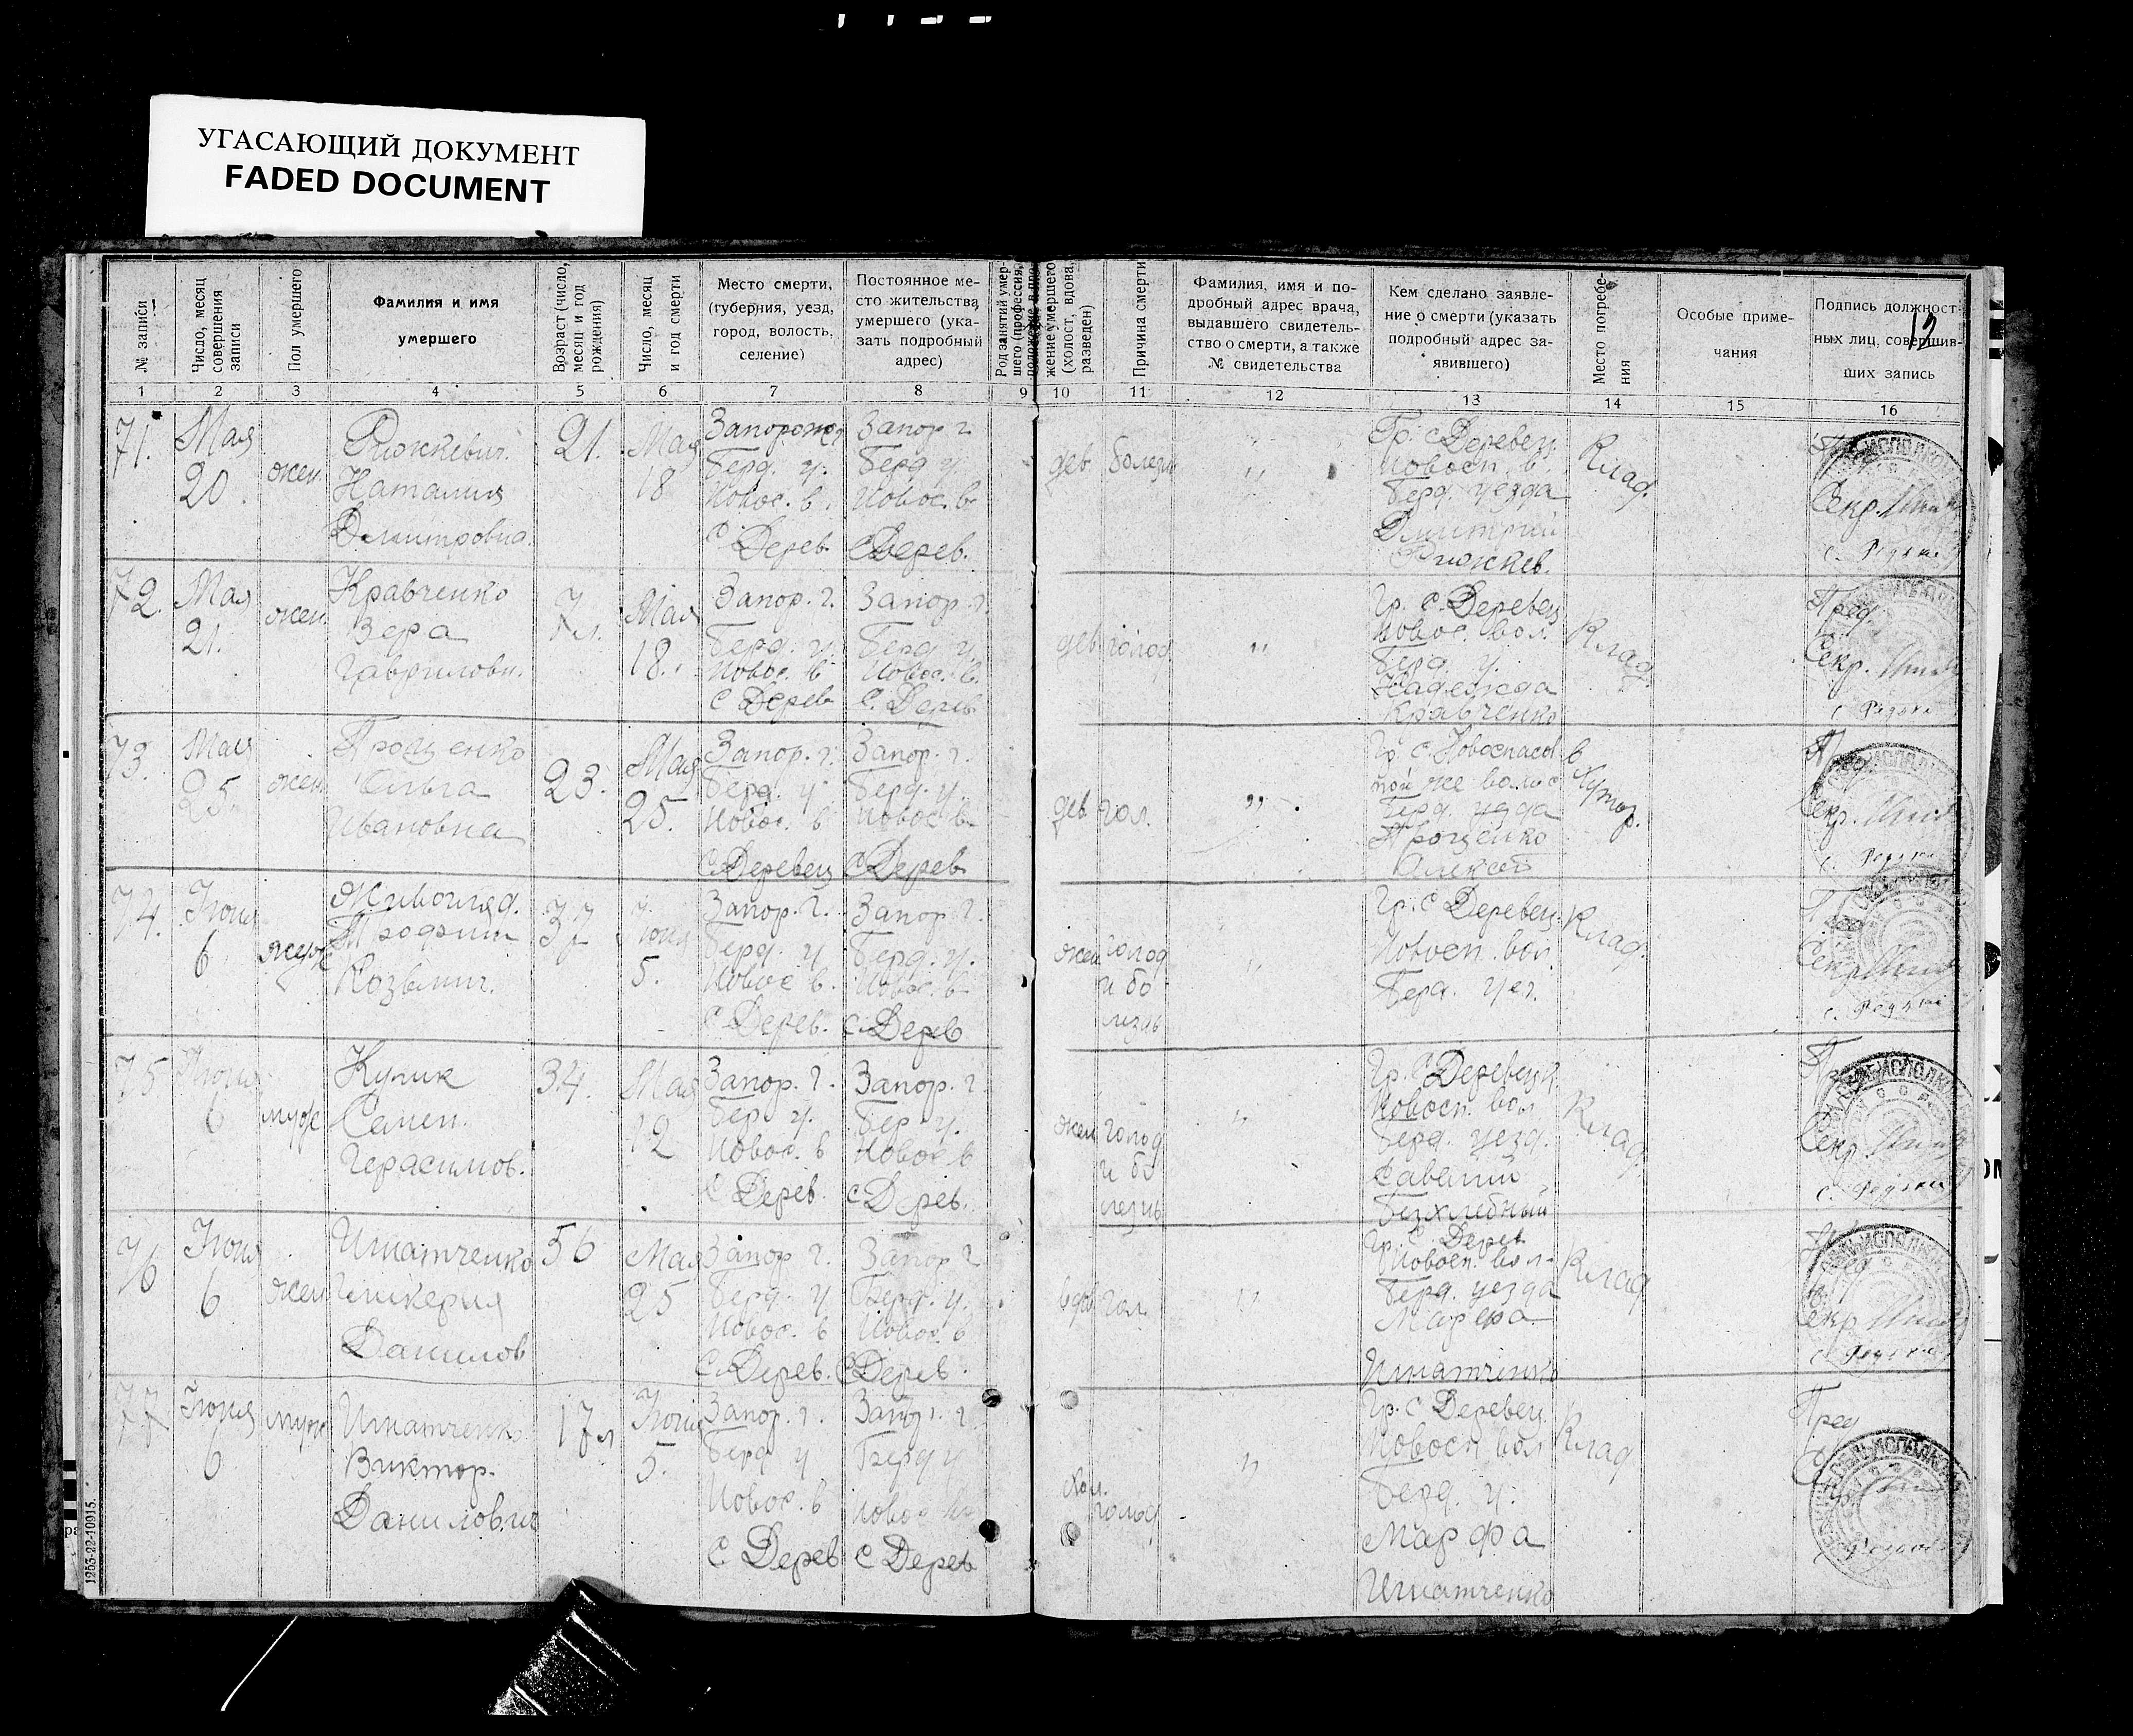 УГАСАЮЩИЙ ДОКУМЕНТ
FADED DOCUMENT
12
№ записи
Число, месяц совершения записи
Пол умершего
Фамилия и имя
умершего
Возраст (число, месяц и год рождения)
Число, месяц и год смерти
Место смерти,
(губерния, уезд,
город, волость,
селение)
Постоянное ме-
сто жительства
умершего (ука-
зать подробный
адрес)
Род занятий умер-
шего (профессия,
жение умершего
(холост, вдова,
разведен)
Причина смерти
Фамилия, имя и по-
дробный адрес врача,
выдавшего свидетель-
ство о смерти, а также
№ свидетельства
Кем сделано заявле-
ние о смерти (указать
подробный адрес за-
явившего)
Место погребе-
ния
Особые приме-
чания
Подпись должност-
ных лиц, совершив-
ших запись
1 2 3 4 5 6 7 8 9 10 11 12 13 14 15 16
71.
Мая
20.
жен.
Наталия
Дмитровна.
21.
Мая
18
Запорож г
Берд. у.
Новос. в.
с Дерев.
Запор г.
Берд у.
Новос. в.
с Дерев.
дев
болезн
" "
Гр. с Деревец
Новосп. в.
Берд. уезда
Дмитрий
Клад.
Секр.
72.
Мая
21.
жен
Кравченко
Вера
Гавриловн.
7 л.
Мая
18.
Запор. г.
Берд. у.
Новос. в
с Дерев
Запор. г.
Берд у.
Новос. в.
с. Дерев
дев
голод
"
Гр. с. Деревец
Новос. вол.
Берд. у.
Надежда
Кравченко
Клад.
Пред.
Секр.
73.
Мая
25.
жен
Трощенко
Ольга
Ивановна
23.
Мая
25.
Запор. г.
Берд. у
Новос. в
с Деревец
Запор. г.
Берд. у.
Новос в.
с Дерев
дев
гол.
"
Гр. с. Новоспасов
той же волос
Берд. уезда
Трощенко
Алексей
в
Хутор.
Секр.
74.
Июня
6
муж
Трофим
Козьмич.
37
Июня
5.
Запор. г.
Берд. у
Новос в.
с Дерев.
Запор г.
Берд. у.
Новос. в
с Дерев
жен
голод
и бо
лезнь
"
Гр. с Деревец
Новосп. вол
Берд. уез.
Клад.
Секр
75
Июня
6
муж
Кулик
Семен.
Герасимов.
34.
Мая
12
Запор. г.
Бер у.
Новос. в
с Дерев
Запор. г
Бер у.
Новос в
с Дерев.
жен
голод
и бо
лезнь
"
Гр. с Деревецк.
Новосп. вол
Берд. уезд.
Саватий
Безхлебный
Клад.
Секр
76
Июня
6
жен
Игнатченко
Гликерия
Данилов
56
Мая
25
Запор г.
Берд. у
Новос. в
с Дерев.
Запор г.
Берд. у.
Новос. в
с Дерев.
вдов
гол.
"
Гр. с. Дерев
Новосп. вол.
Берд. уезда
Марфа
Игнатченко
Клад
Секр
77
Июня
6
муж
Игнатченко
Виктор.
Данилович
17 л
Июня
5.
Запор. г.
Берд у
Новос. в
с Дерев
Запор. г.
Берд у
Новос в
с Дерев
хол.
голод
"
Гр. с Деревец
Новосп вол
Берд. у.
Марфа
Игнатченко
Клад
Пред
1263-22-10915.